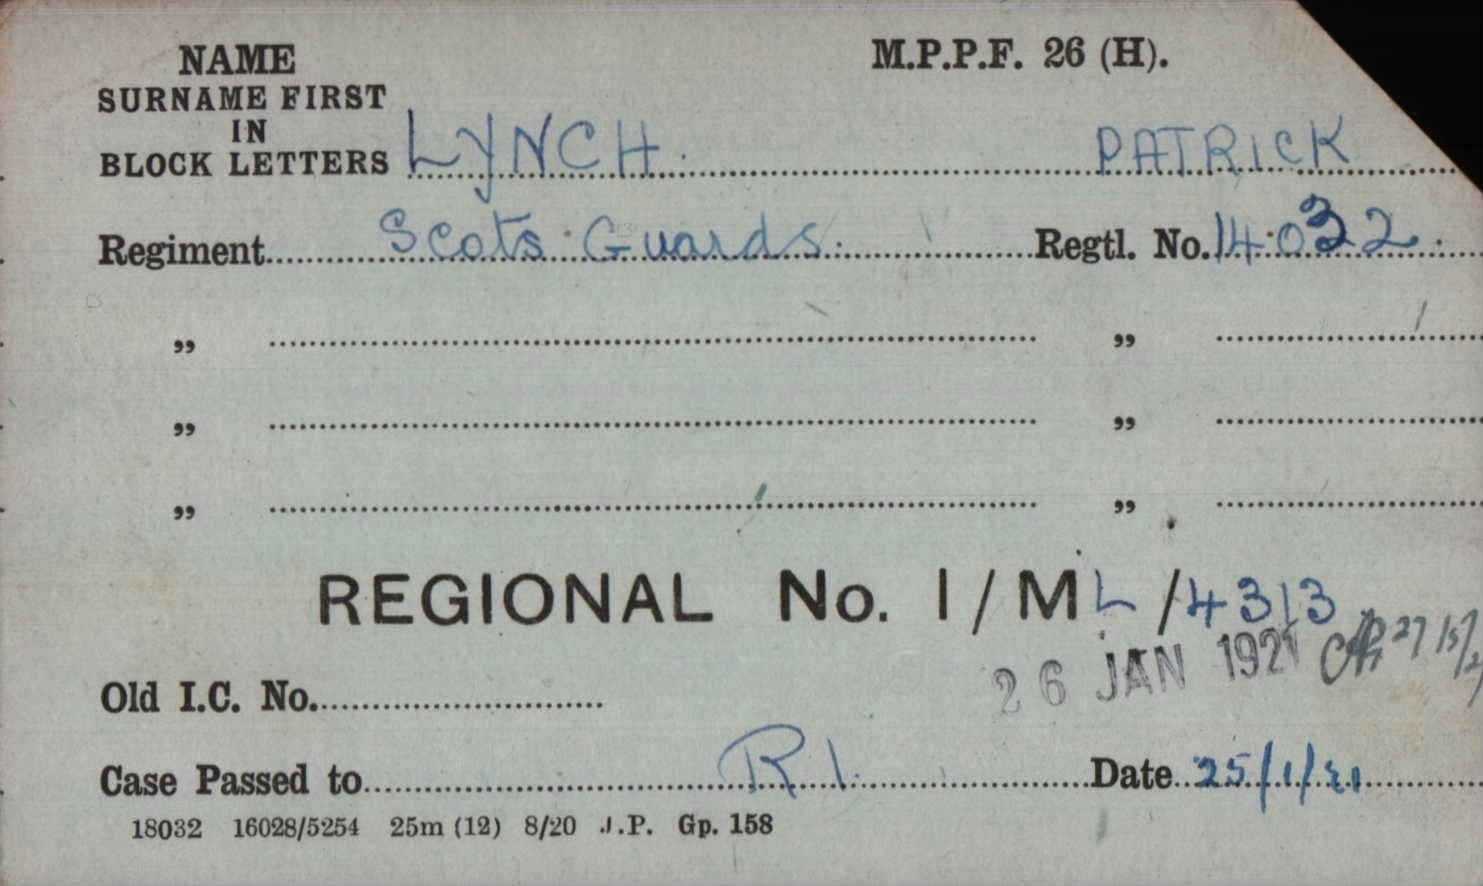 NAME
M.P.P.F. 26 (H).
SURNAME FIRST
IN
BLOCK LETTERS LYNCH. PATRICK
Regiment Scots Guards. Regtl. No. 14032.
„ „
„ „
„ „
REGIONAL No. 1/ML/4313
26 JAN 1921
Old I.C. No.
Case Passed to R1. Date 25/1/21
18032 16028/5254 25m (12) 8/20 J.P. Gp. 158